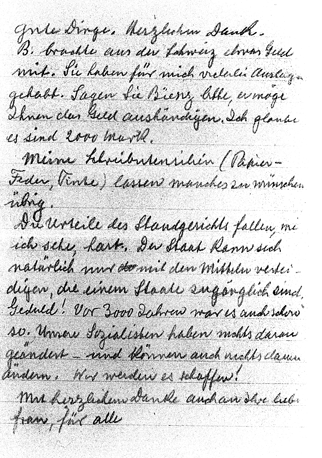 Gute Dirge. Herzlichen Dank.
B. brachte aus der Schweiz etwas Geld
mit. Sie haben für mich vielerlei Auslagen
gehabt. Sagen Sie Bienz bitte, er möge
Ihnen das Geld aushändigen. Ich glaube
es sind 2000 Mark.
Meine Schreibutensilien (Papier-
Feder, Tinte) lassen manches zu wünschen
übrig.
Die Urteile des Standgerichts fallen, wie
ich sehe, hart. Der Staat kann sich
natürlich nur mit den Mitteln vertei-
digen, die einem Staate zugänglich sind.
Geduld! Vor 3000 Jahren war es auch schon
so. Unsere Sozialisten haben nichts daran
geändert – und können auch nichts daran
ändern. Wir werden es schaffen!
Mit herzlichem Danke auch an Ihre liebe
Frau, für alle